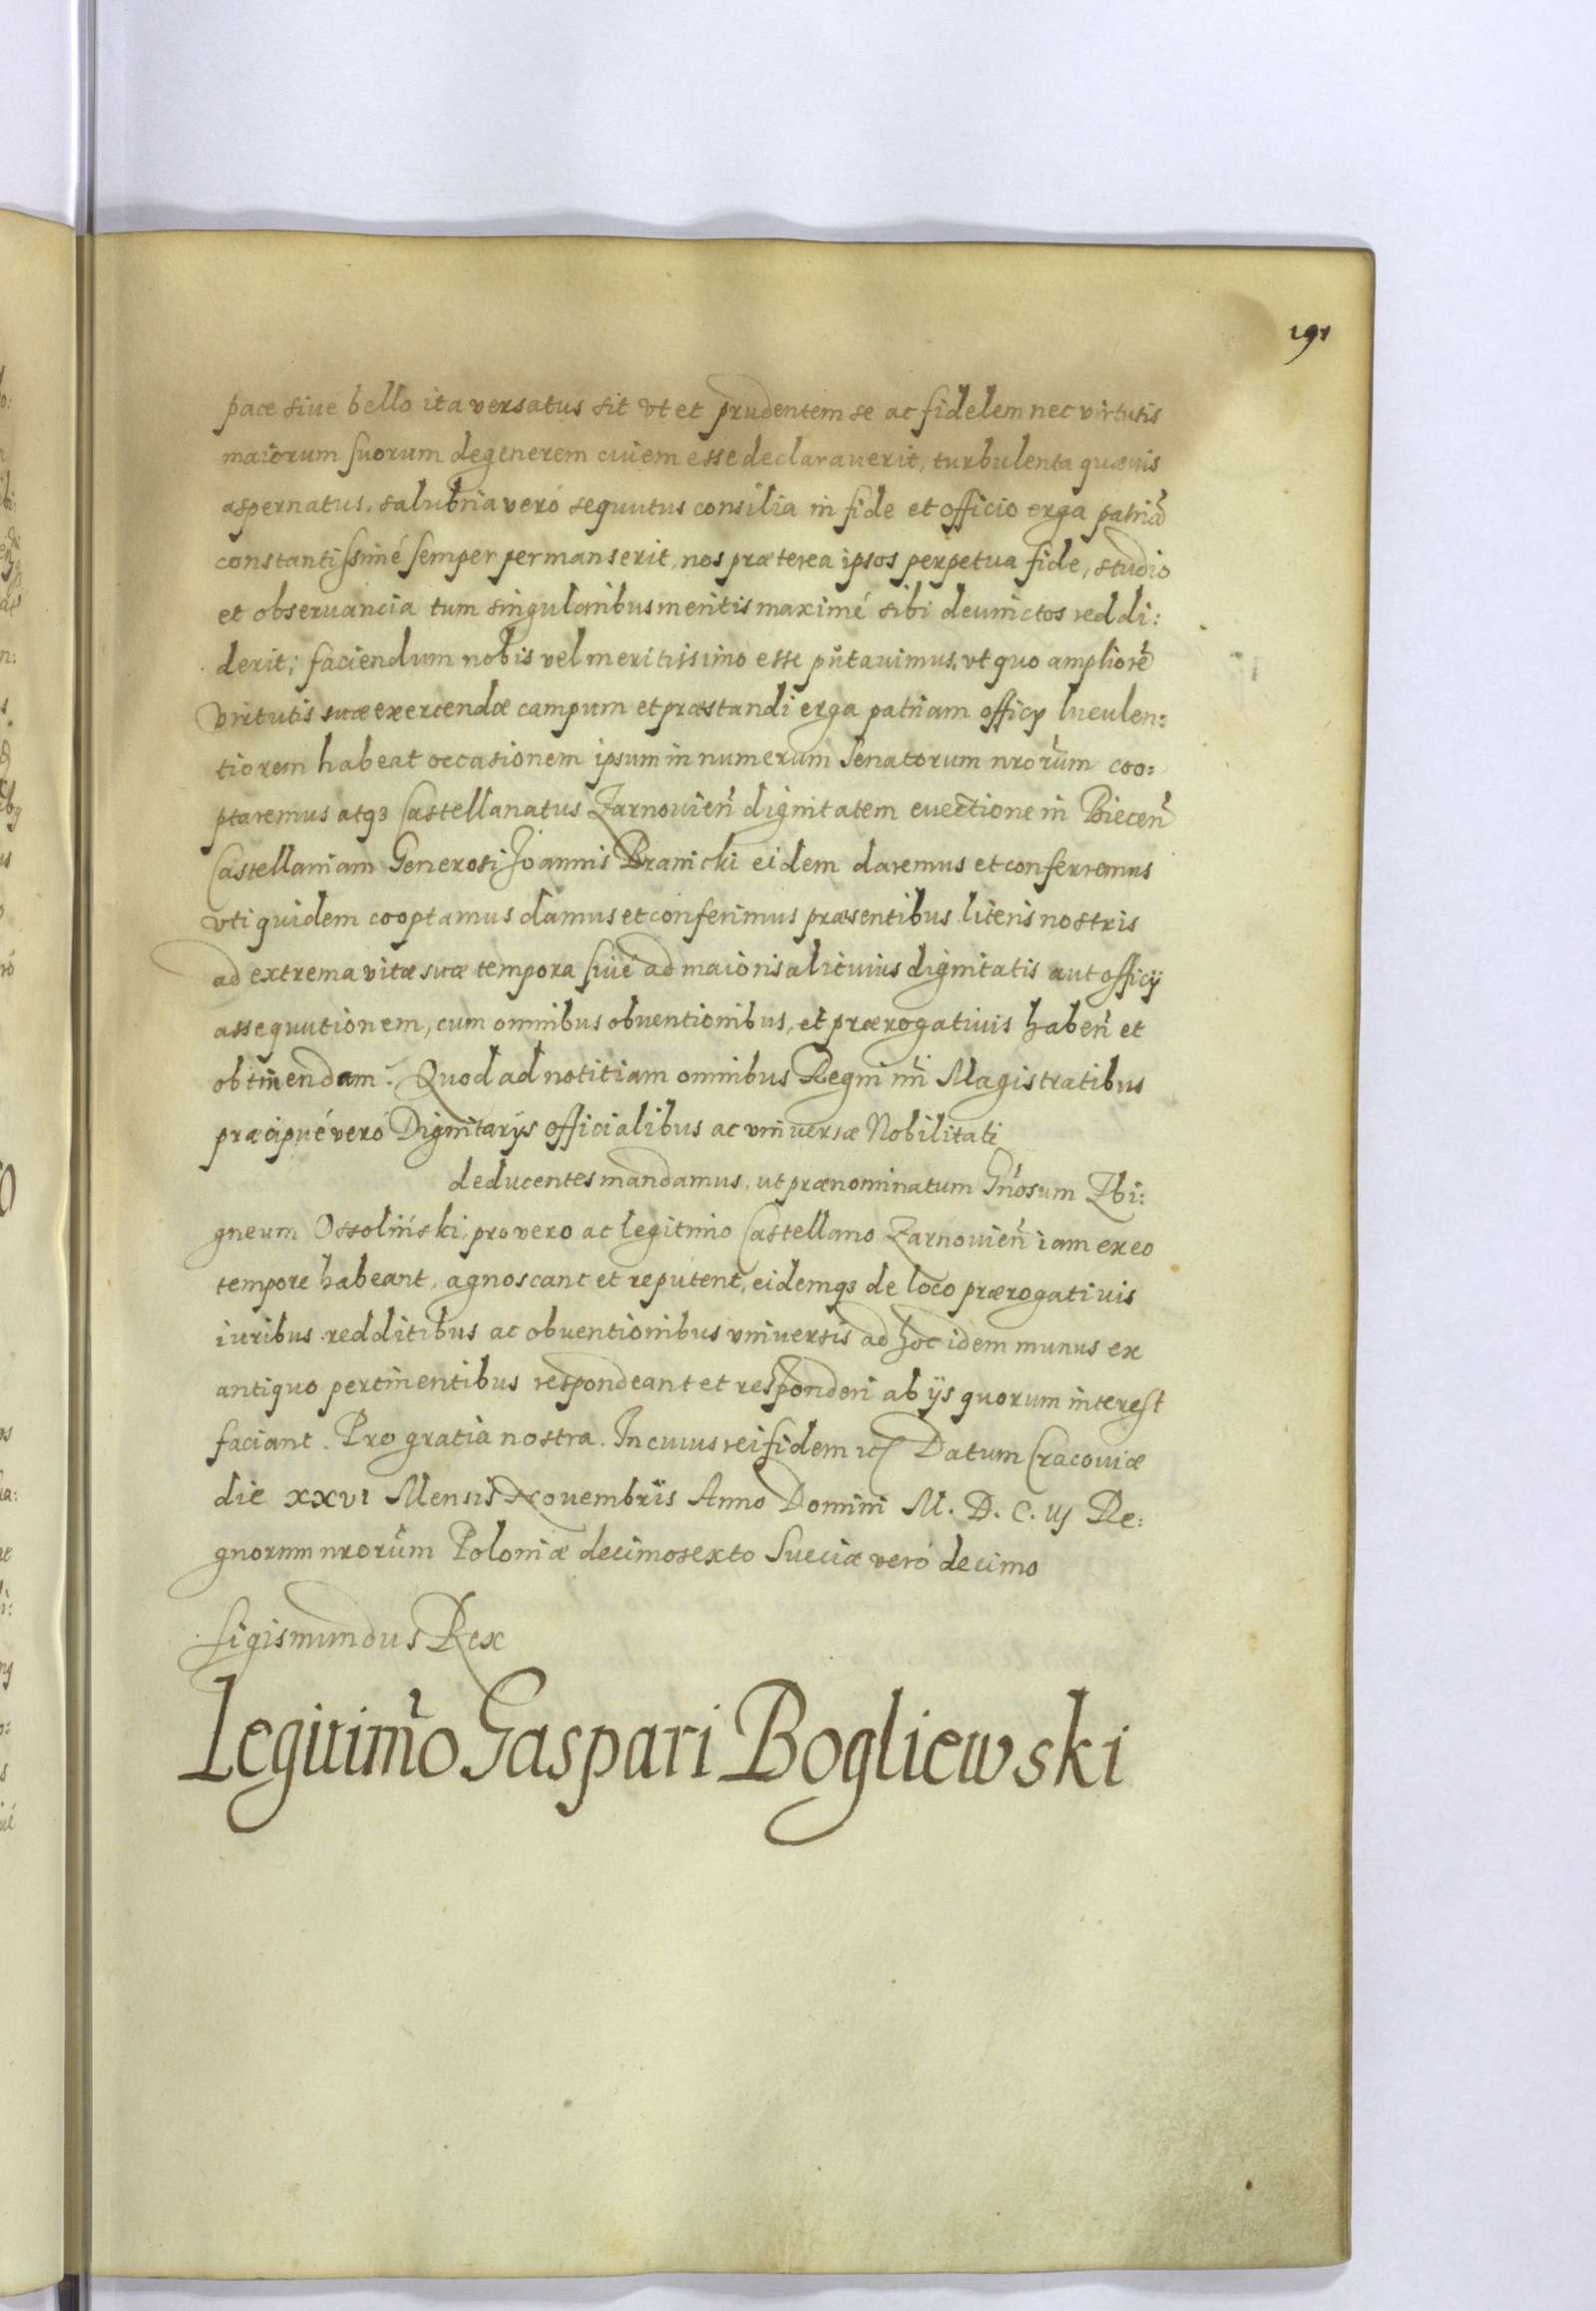 191
pace siue bello ita versatus sit vt et prudentem se ac fidelem nec virtutis
maiorum suorum degenerem ciuem esse declarauerit, turbulenta quæuis
aspernatus, salubria veró sequutus consilia in fide et officio erga patriā
constantissimé semper permanserit, nos præterea ipsos perpetua fide, studio
et obseruancia tum singularibus meritis maximé sibi deuinctos reddi:
derit; faciendum nobis vel meritissimo esse putauimus, vt quo ampliorē
virtutis suæ exercendæ campum et præstandi erga patriam officÿ luculen:
tiorem habeat occasionem ipsum in numerum Senatorum nrorum coo:
ptaremus atqȝ Castellanatus Zarnouieñ dignitatem euectione in Bieceñ
Castellaniam Generosi Joannis Branicki eidem daremus et conferremus
vti quidem cooptamus damus et conferimus præsentibus literis nostris
ad extrema vitæ suæ tempora siué ad maioris alicuius dignitatis aut officÿ
assequutionem, cum omnibus obuentionibus, et prærogatiuis habeñ et
obtinendam. Quod ad notitiam omnibus Regni nri Magistratibus
præcipué vero Dignitarÿs officialibus ac vniuersæ Nobilitati
deducentes mandamus, ut prænominatum Gnosum Zbi:
gneum Ossoliński, pro vero ac legitimo Castellano Zarnouieñ iam ex eo
tempore habeant, agnoscant et reputent, eidemqȝ de loco prærogatiuis
iuribus redditibus ac obuentionibus vniuersis ad hoc idem munus ex
antiquo pertinentibus respondeant et responderi ab ÿs quorum interest
faciant. Pro gratia nostra. In cuius rei fidem etc Datum Cracouiæ
die XXVI Mensis Nouembris Anno Domini M. D. C. iij Re:
gnorum nrorum Poloniæ decimosexto Sueciæ veró decimo
Sigismundus Rex
Legitimõ Gaspari Bogliewski